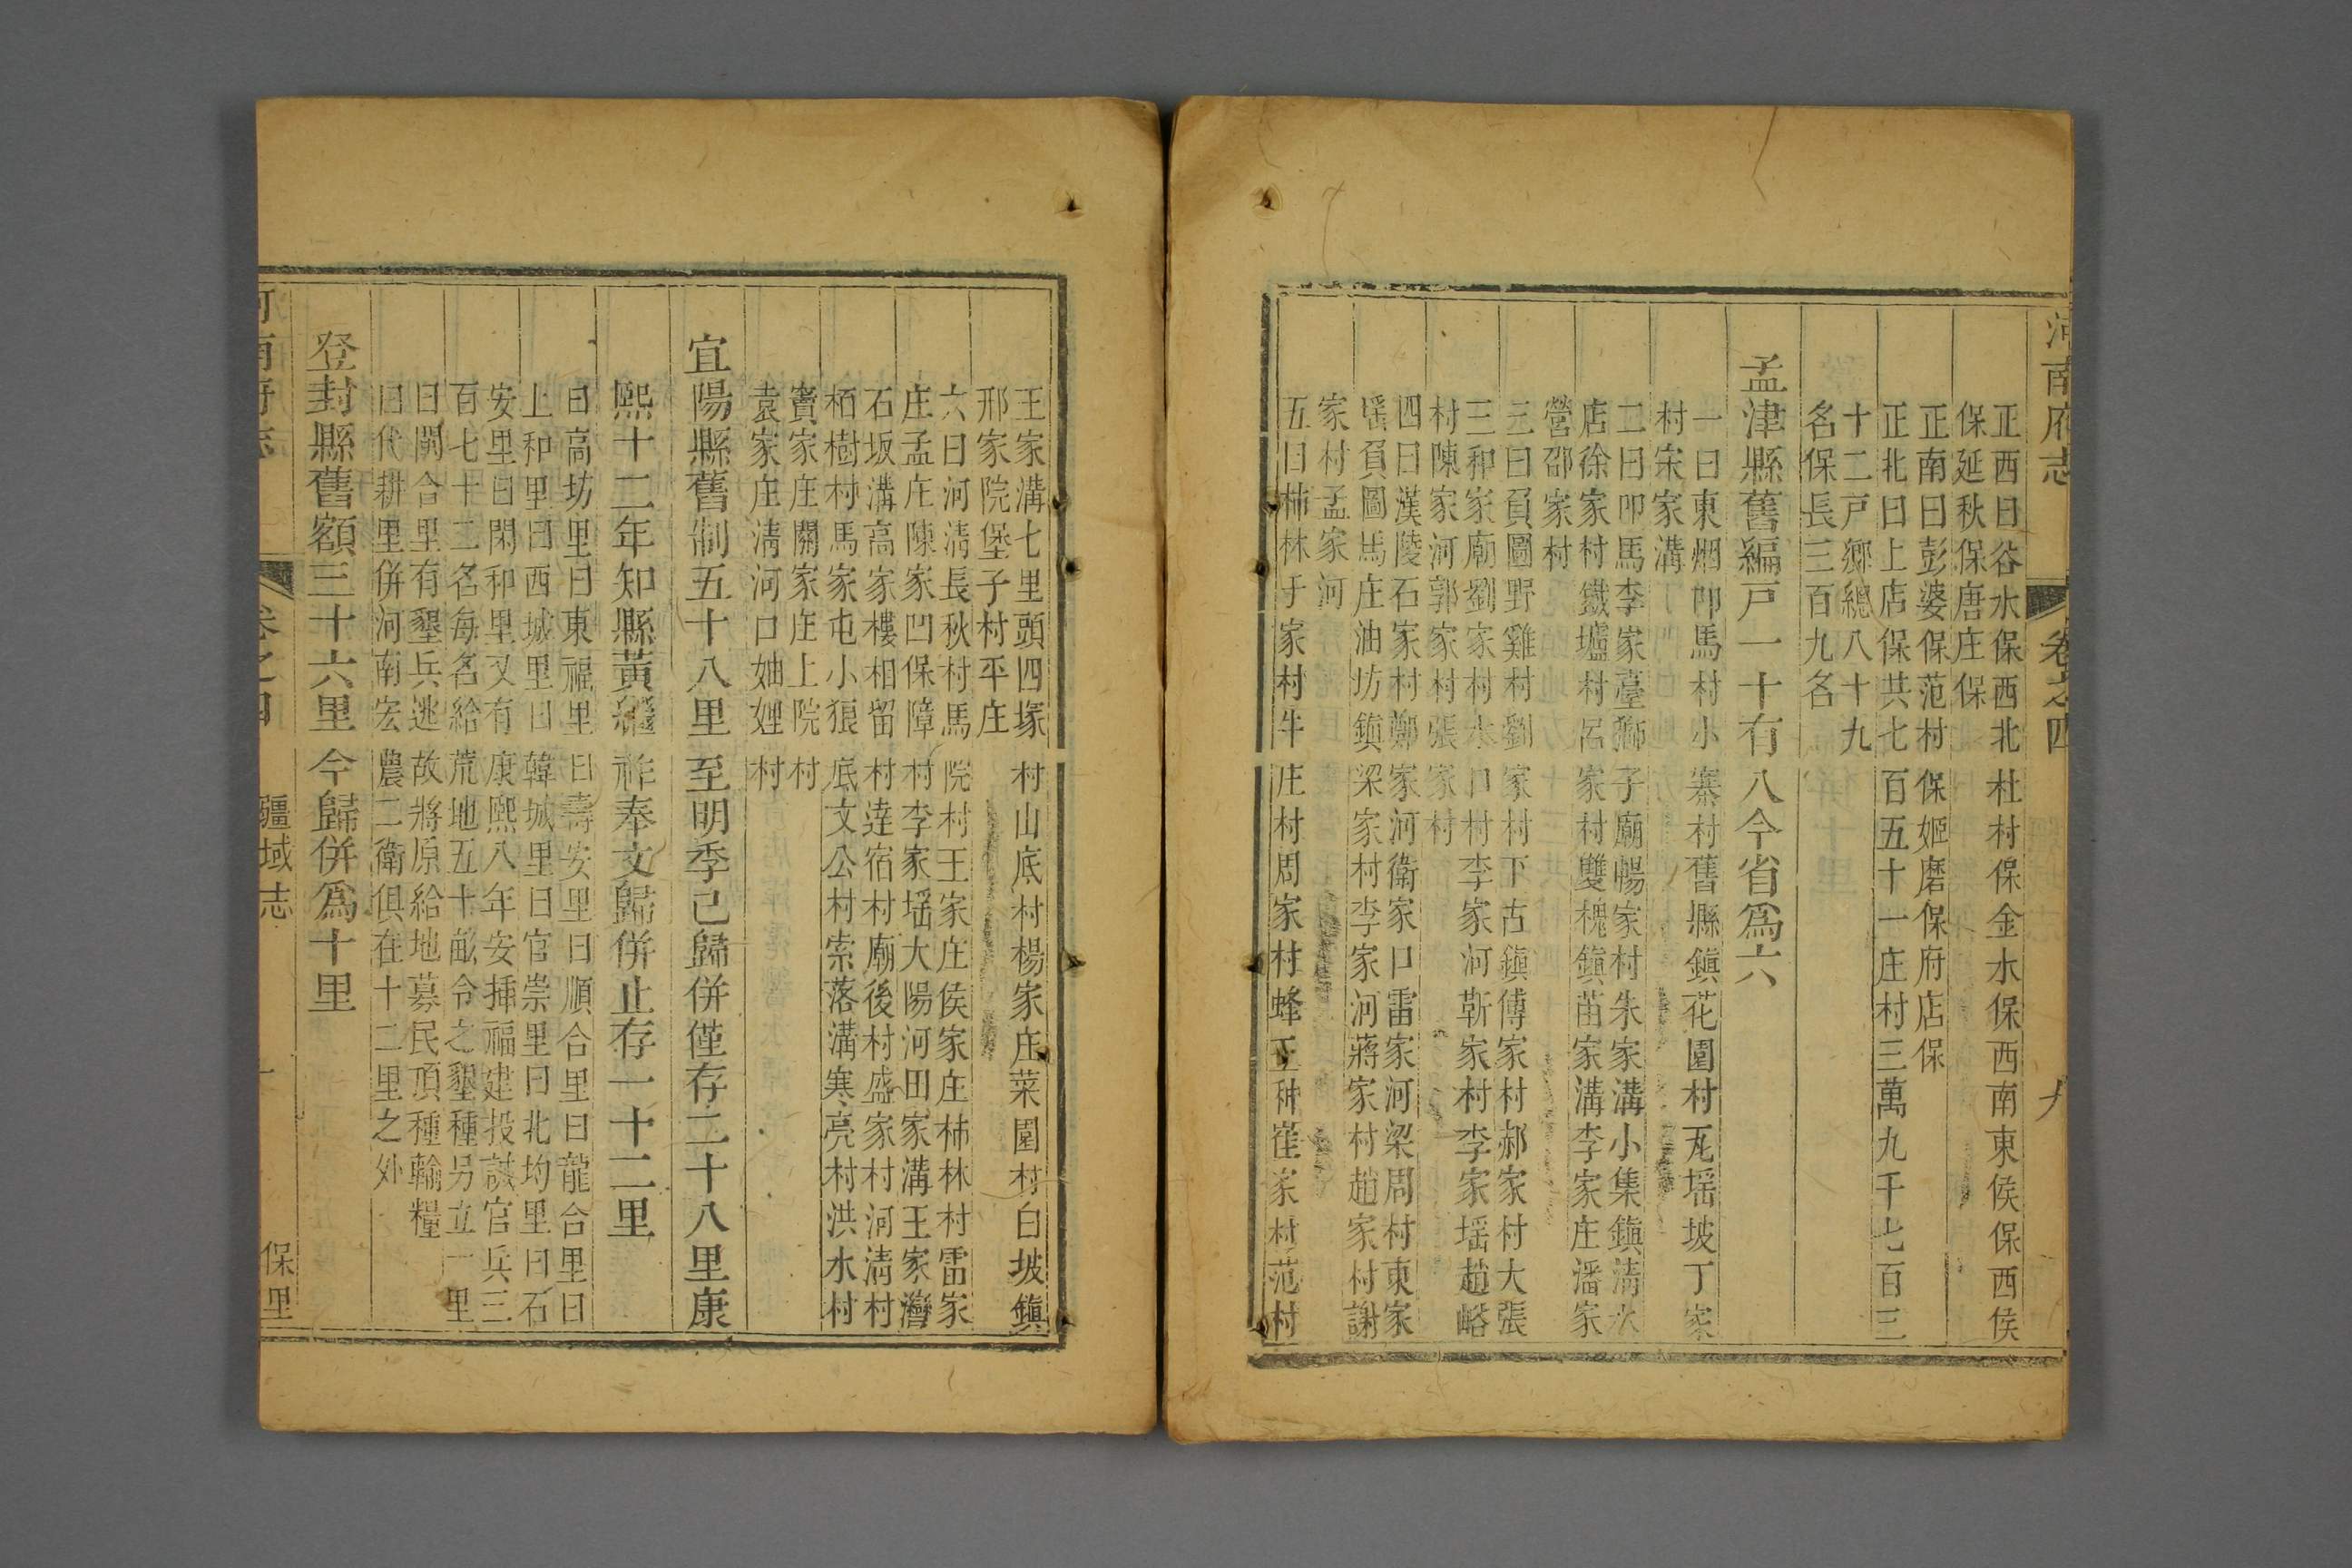 河南府志 卷之四 九
正西曰谷水保西北杜村保金水保西南東侯保西侯
保延秋保唐庄保
正南曰彭婆保范村保姬磨保府店保
正北曰上店保共七百五十一庄村三萬九千七百三
十二戸鄉總八十九
名保長三百九名
孟津縣舊編戸一十有八今省爲六
一曰東烟卬馬村小寨村舊縣鎮花園村瓦塸坡丁寨
村宋家溝
二曰卬馬李家臺獅子廟暢家村朱家溝小集鎮清水
店徐家村鐵壚村呂家村雙槐鎮苗家溝李家庄潘家
營邵家村
三曰負圖野雞村劉家村下古鎮傅家村郝家村大張
三和家廟劉家村水口村李家河靳家村李家塸趙峪
村陳家河郭家村張家村
四曰漢陵石家村鄭家河衛家口雷家河梁周村東家
塸負圖馬庄油坊鎮梁家村李家河蔣家村趙家村謝
家村孟家河
五曰柿林于家村牛庄村周家村蜂王种崔家村范村
王家溝七里頭四塚村山底村楊家庄菜園村白坡鎮
邢家院堡子村平庄
六曰河清長秋村馬院村王家庄侯家庄柿林村雷家
庄孟庄陳家凹保障村李家塸大陽河田家溝王家灣
石坂溝高家樓相留村逹宿村廟後村盛家村河清村
栢樹村馬家屯小狼底文公村索落溝寒亮村洪水村
竇家庄關家庄上院村
袁家庄清河口妯娌村
宜陽縣舊制五十八里至明季己歸併僅存二十八里康
熙十二年知縣黃纘祚奉文歸併止存一十二里
曰高坊里曰東福里曰壽安里曰順合里曰龍合里曰
上和里曰西城里曰韓城里曰官崇里曰北均里曰石
安里曰閑和里又有康熙八年安插福建投誠官兵三
百七十二名每名給荒地五十畝令之墾種另立一里
曰開合里有墾兵逃故將原給地募民頂種輸糧
曰代耕里併河南宏農二衛俱在十二里之外
登封縣舊額三十六里今歸併爲十里
河南府志 卷之四 疆域志 保里